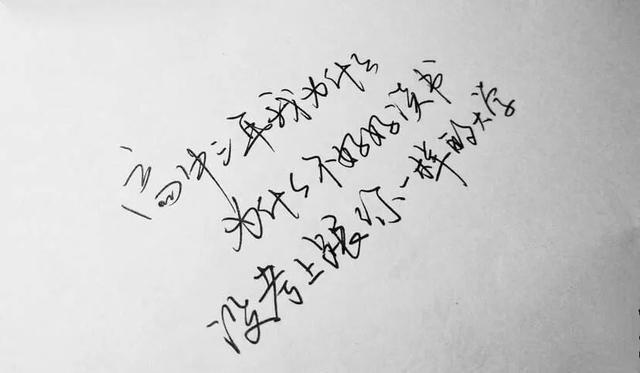 高中三年我为什么
为什么不好好读书
没考上跟你一样的大学